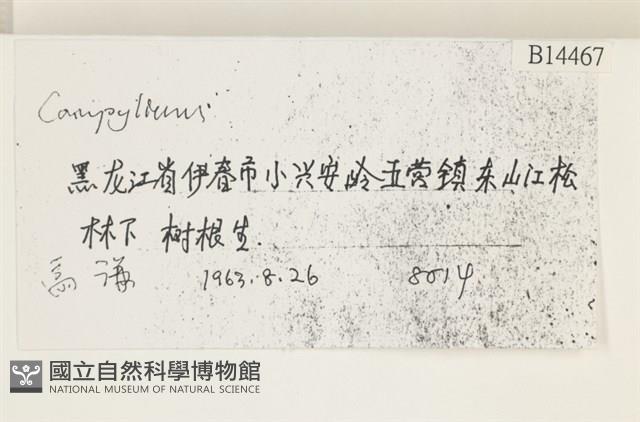 B14467
Campylium
黑龙江省伊春市小兴安岭五营镇东山江松
林下 树根生.
高 谦 1963.8.26 8014
國立自然科學博物館
NATIONAL MUSEUM OF NATURAL SCIENCE